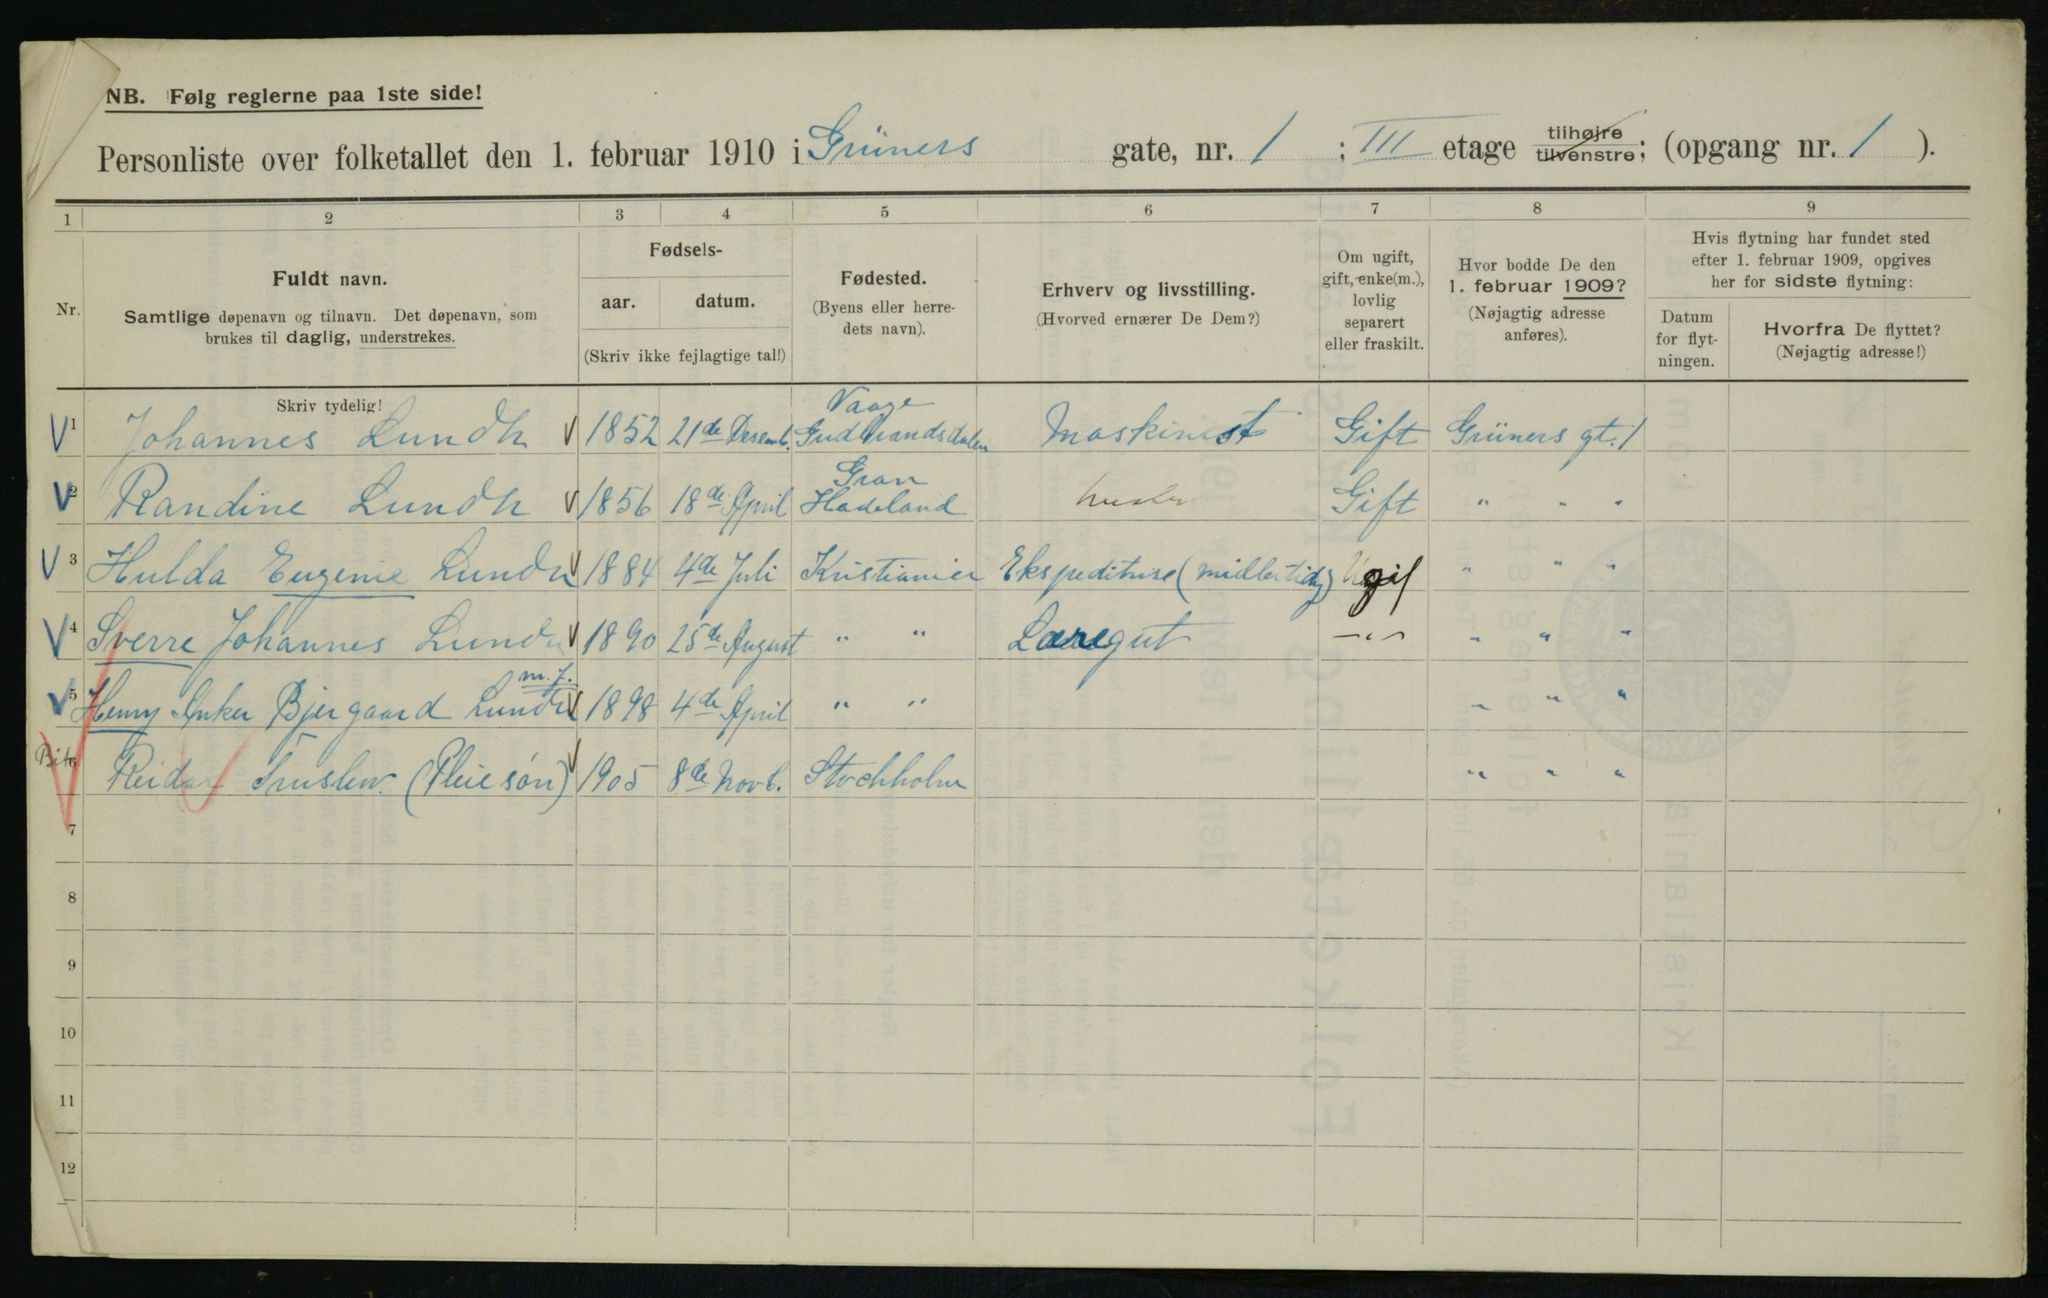 NB. Følg reglerne paa 1ste side!
Personliste over folketallet den 1. februar 1910 i Grüners gate, nr. 1 ; III etage tilhøjre tilvenstre; (opgang nr. 1 ).
1 2 3 4 5 6 7 8 9
Nr.
Fuldt navn.
Samtlige døpenavn og tilnavn. Det døpenavn, som
brukes til daglig, understrekes.
Skriv tydelig!
Fødsels-
aar. datum.
(Skriv ikke fejlagtige tal!)
Fødested.
(Byens eller herre-
dets navn).
Erhverv og livsstilling.
(Hvorved ernærer De Dem?)
Om ugift,
gift, enke(m.),
lovlig
separert
eller fraskilt.
Hvor bodde De den
1. februar 1909?
(Nøjagtig adresse
anføres).
Hvis flytning har fundet sted
efter 1. februar 1909, opgives
her for sidste flytning:
Datum
for flyt-
ningen.
Hvorfra De flyttet?
(Nøjagtig adresse!)
Vaage
V 1 Johannes Lundh V 1852 21de Desemb. Gudbrandsdalen Maskinist Gift Grüners gt. 1
Gran
V 2 Randine Lundh V 1856 18de April Hadeland Gift " " "
V 3 Hulda Eugenie Lundh V 1884 4de Juli Kristiania Ekspeditrise (midlertidig) Ugif " " "
V 4 Sverre Johannes Lundh V 1890 25de August " " Læregut -"- " " "
m. f.
V 5 Henry Anker Bjergaard Lundh V 1898 4de April " " " " "
6 Reidar (Pleiesøn) V 1905 8de Novb. Stockholm " " "
7
8
9
10
11
12